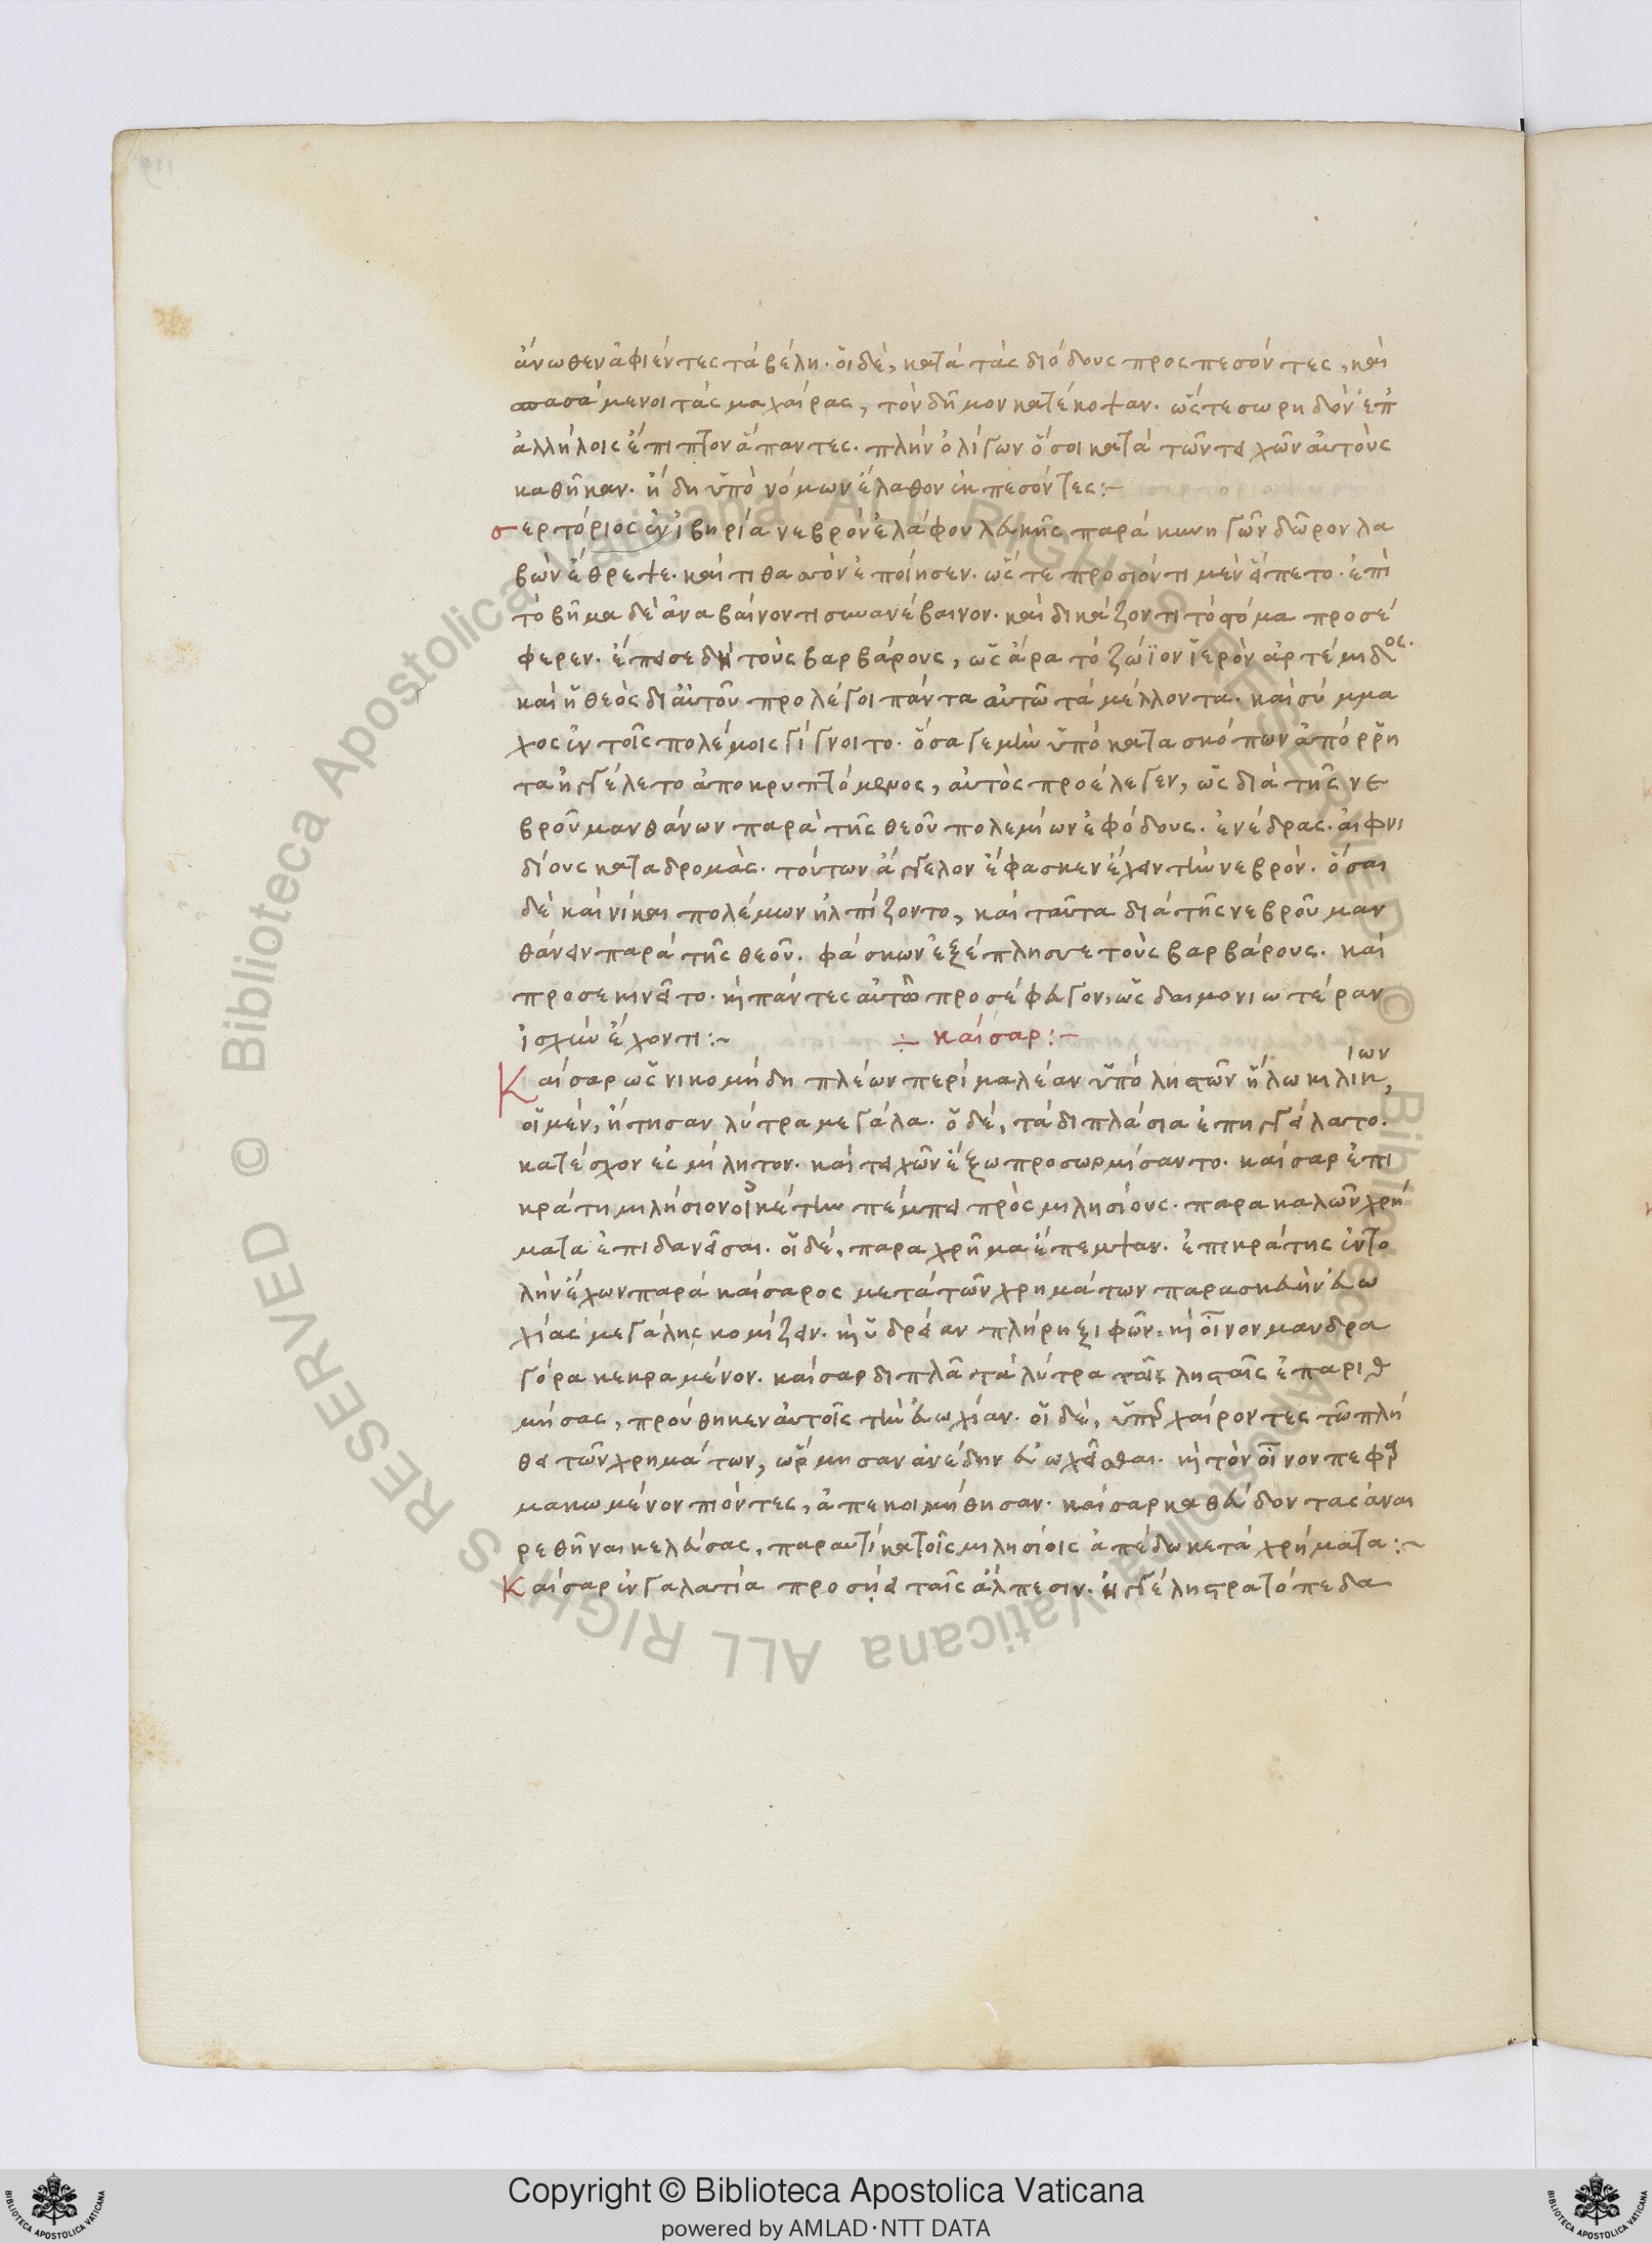 ἄνωθεν ἀφιέντες τὰ βέλη· οἱ δὲ, κατὰ τὰς διόδους προσπεσόντες, καὶ
σπασάμενοι τὰς μαχαίρας, τὸν δῆμον κατέκοψαν· ὥστε σωρηδὸν ἐπ
ἀλλήλοις ἔπιπτον ἅπαντες· πλὴν ὀλίγων ὅσοι κατὰ τῶν τειχῶν αὑτοὺς
καθῆκαν· ἤδη ὑπὸ νόμων ἔλαθον ἐκπεσόντες:~
σερτόριος ἐν ἰβηρία νεβρὸν ἐλάφου λευκῆς παρὰ κυνηγῶν δῶρον λα
βὼν ἔθρεψε· καὶ τιθασὸν ἐποίησεν· ὥστε προσιόντι μὲν εἵπετο· ἐπὶ
τὸ βῆμα δὲ ἀναβαίνοντι συνανέβαινον· καὶ δικάζοντι τὸ στόμα προσέ
φερεν· ἔπεισε δὴ τοὺς βαρβάρους, ὡς ἄρα τὸ ζώϊον ἱερὸν ἀρτέμιδος·
καὶ ἡ θεὸς δι αὐτοῦ προλέγοι πάντα αὐτῶ τὰ μέλλοντα· καὶ σύμμα
χος ἐν τοῖς πολέμοις γίγνοιτο· ὅσα γε μὴν ὑπὸ κατασκόπων ἀπόρρη
τα ἠγγέλετο ἀποκρυπτόμενος, αὐτὸς προέλεγεν, ὡς διὰ τῆς νε
βροῦ μανθάνων παρὰ τῆς θεοῦ πολεμίων ἐφόδους· ἐνέδρας· αἰφνι
δίους καταδρομάς· τούτων ἄγγελον ἔφασκεν ἔχειν τὴν νεβρόν· ὅσαι
δὲ καὶ νίκαι πολέμων ἠλπίζοντο, καὶ ταῦτα διὰ τῆς νεβροῦ μαν
θάνειν παρὰ τῆς θεοῦ· φάσκων ἐξέπλησσε τοὺς βαρβάρους· καὶ
προσεκινεῖτο· καὶ πάντες αὐτῶ προσέφευγον, ὡς δαιμονιωτέραν
ἰσχὺν ἔχοντι:~ ÷ καίσαρ:~
Καίσαρ ὡς νικομήδη πλέων περὶ μαλέαν ὑπὸ ληστῶν ἥλω κιλικίων,
οἱ μὲν, ἤτησαν λύτρα μεγάλα· ὁ δὲ, τὰ διπλάσια ἐπηγγείλατο·
κατέσχον ἐς μίλητον· καὶ τειχῶν ἔξω προσωρμίσαντο· καίσαρ ἐπι
κράτη μιλήσιον οἰκέτην πέμπει πρὸς μιλησίους· παρακαλῶν χρή
ματα ἐπιδανεῖσαι· οἱ δὲ, παραχρῆμα ἔπεμψαν· ἐπικράτης ἐντο
λὴν ἔχων παρὰ καίσαρος μετὰ τῶν χρημάτων παρασκευὴν εὐω
χίας μεγάλης κομίζειν· καὶ ὑδρείαν πλήρη ξιφῶν· καὶ οἶνον μανδρα
γόρα κεκραμένον· καίσαρ διπλᾶ τὰ λύτρα τοῖς λησταῖς ἐπαριθ
μήσας, προύθηκεν αὐτοῖς τὴν εὐωχίαν· οἱ δὲ, ὑπερχαίροντες τῶ πλή
θει τῶν χρημάτων, ὥρμησαν ἀνέδην εὐωχεῖσθαι· καὶ τὸν οἶνον πεφαρ
μακωμένον πιόντες, ἀπεκοιμήθησαν· καίσαρ καθεύδοντας ἀναι
ρεθῆναι κελεύσας, παραυτίκα τοῖς μιλησίοις ἀπέδωκε τὰ χρήματα:~
Καίσαρ ἐν γαλατία προσήει ταῖς ἄλπεσιν· ἠγγέλη στρατόπεδα